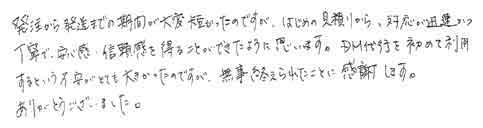 発注から発送までの期間が大変短かったのですが、はじめの見積りから、対応が迅速かつ
丁寧で、安心感、信頼感を得ることができたように思います。DM代行を初めて利用
するという不安がとても大きかったのですが、無事終えられたことに感謝します。
ありがとうございました。